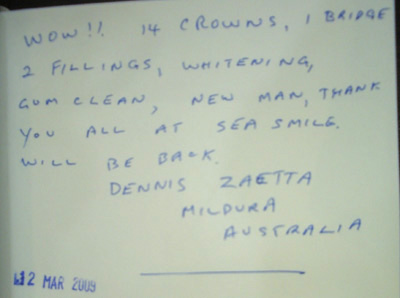 WOW!! 14 CROWNS, 1 BRIDGE
2 FILLINGS, WHITENING,
GUM CLEAN, NEW MAN, THANK
YOU ALL AT SEA SMILE.
WILL BE BACK.
DENNIS ZAETTA
MILDURA
AUSTRALIA
12 MAR 2009